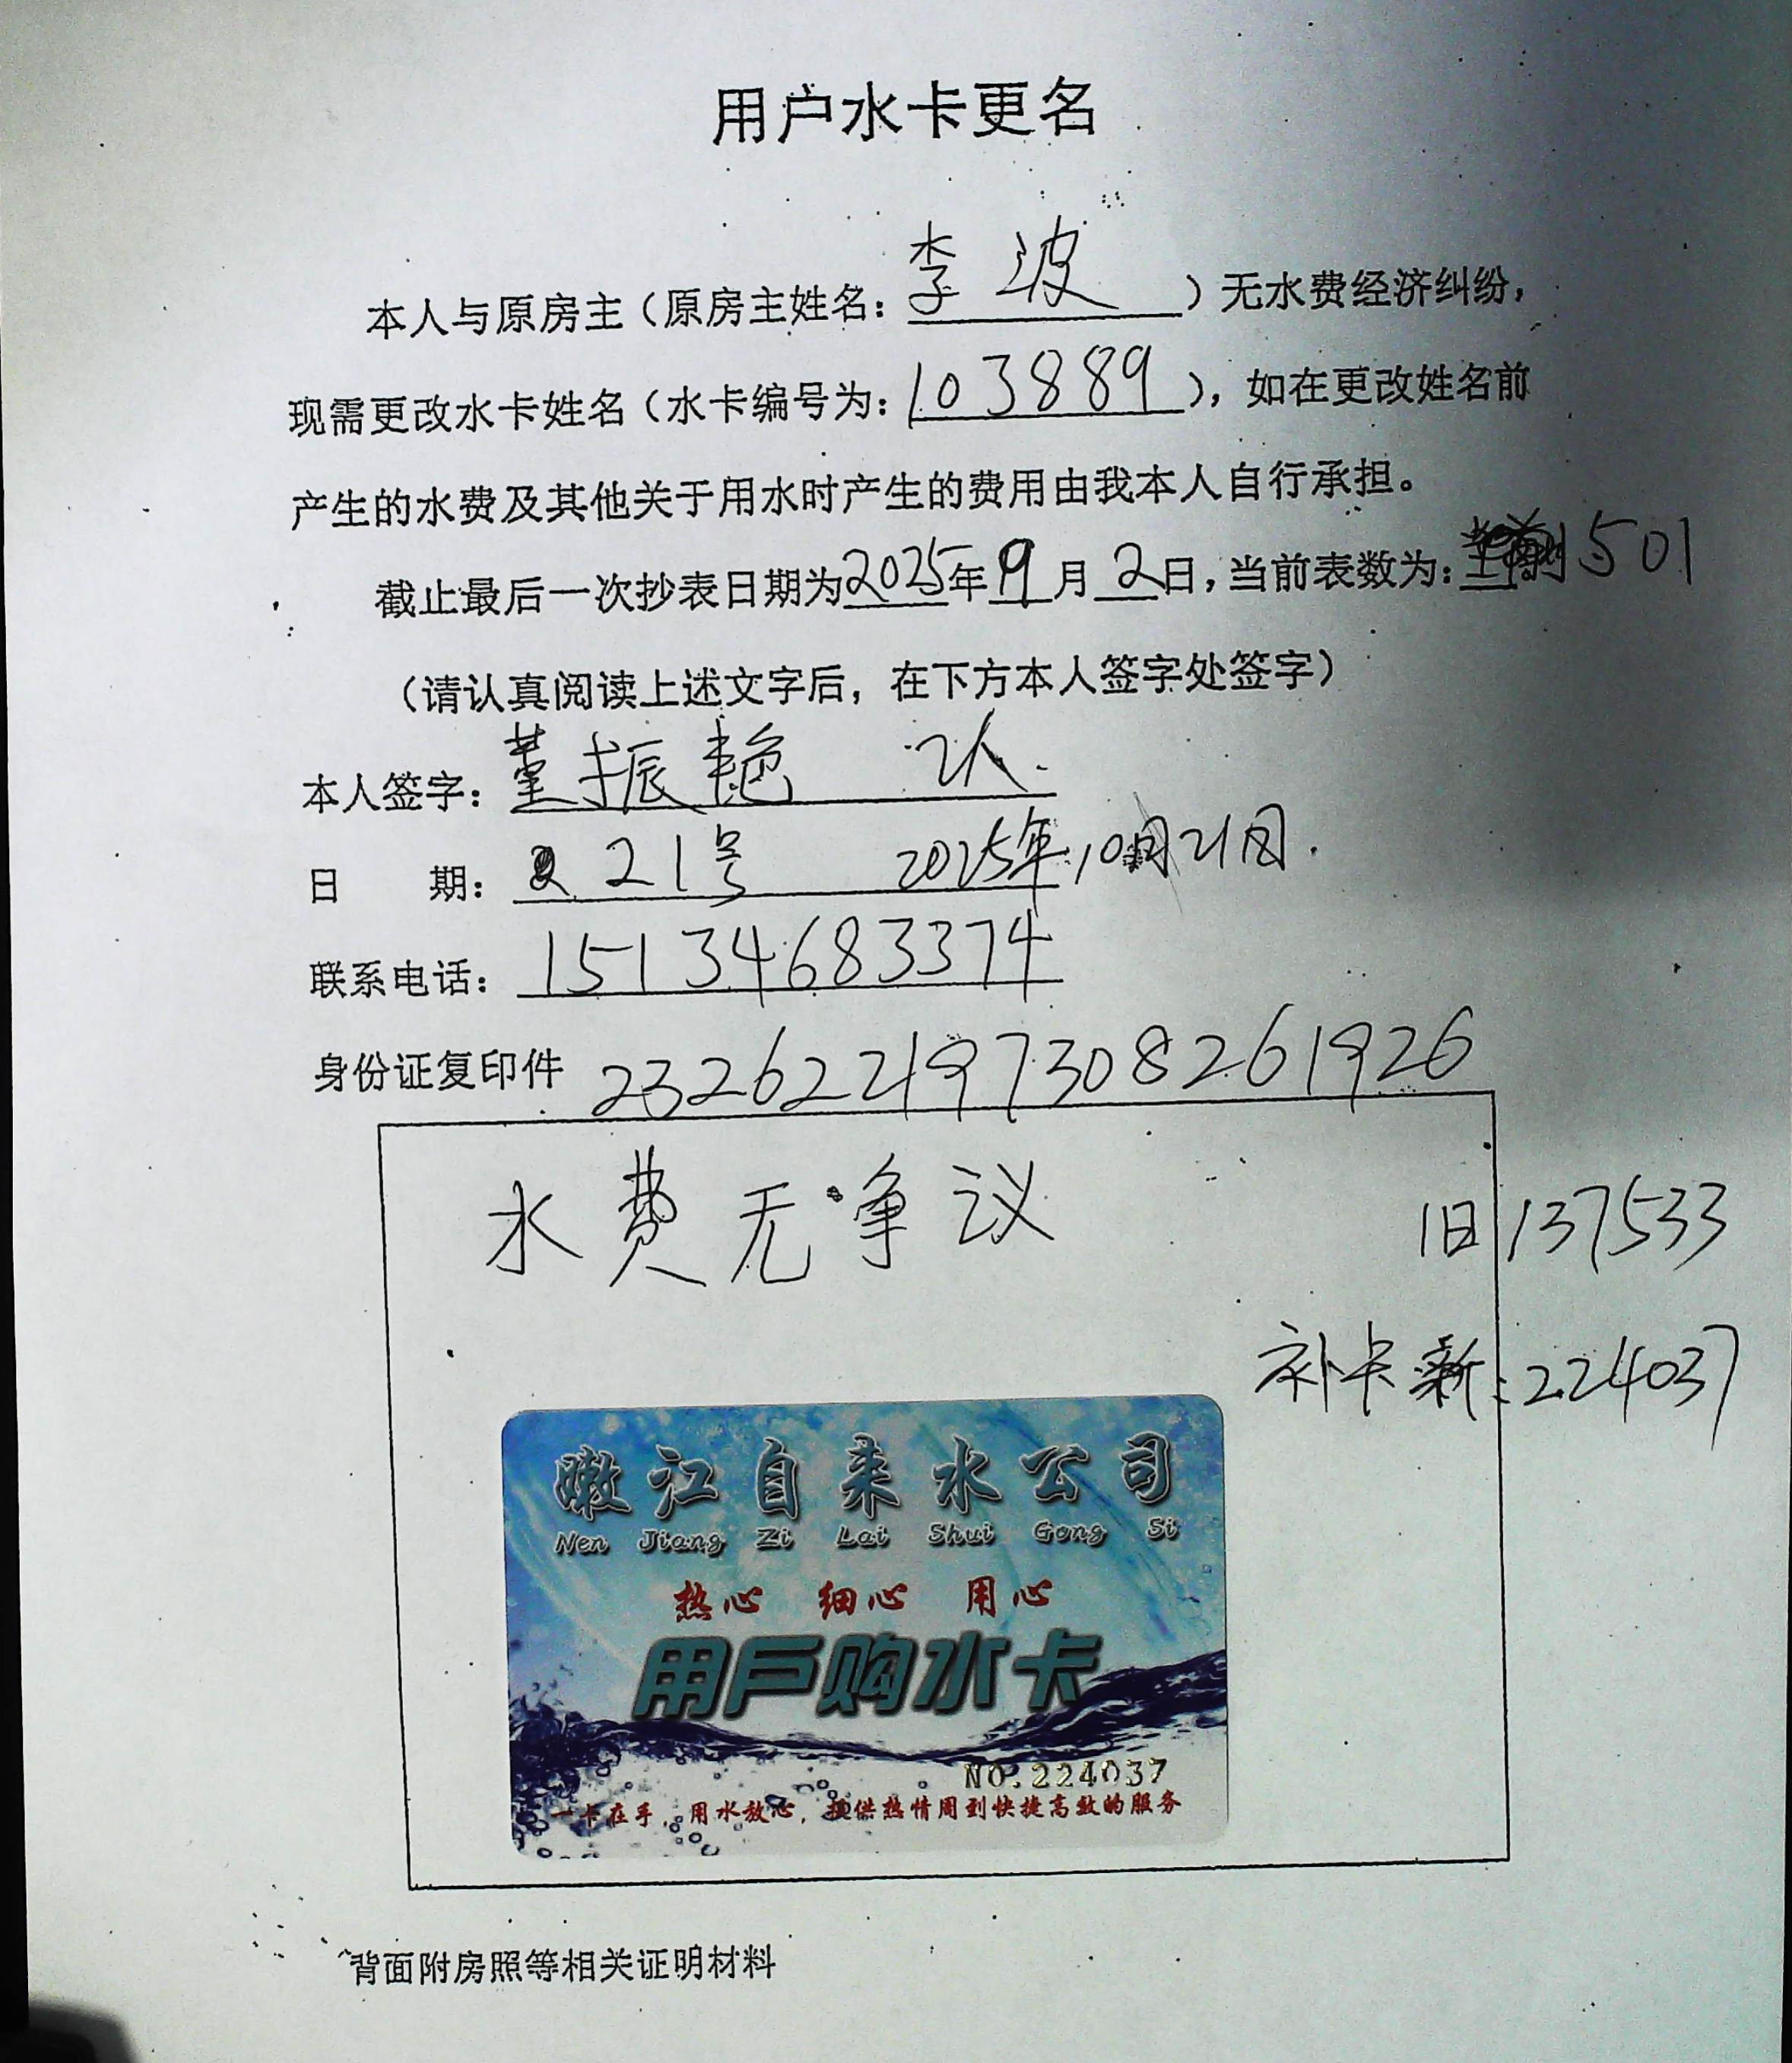 用户水卡更名
本人与原房主（原房主姓名：李波）无水费经济纠纷，
现需更改水卡姓名（水卡编号为：103889），如在更改姓名前
产生的水费及其他关于用水时产生的费用由我本人自行承担。
截止最后一次抄表日期为2025年9月2日，当前表数为：501
（请认真阅读上述文字后，在下方本人签字处签字）
本人签字：董振艳 2人.
日 期：21号 2025年10月21日.
联系电话：15134683374
身份证复印件 232622197308261926
水费无争议
旧137533
补卡新：224037
嫩江自来水公司
Nen Jiang Zi Lai Shui Gong Si
热心 细心 用心
用户购水卡
NO.224037
一卡在手，用水放心，提供热情周到快捷高效的服务
背面附房照等相关证明材料